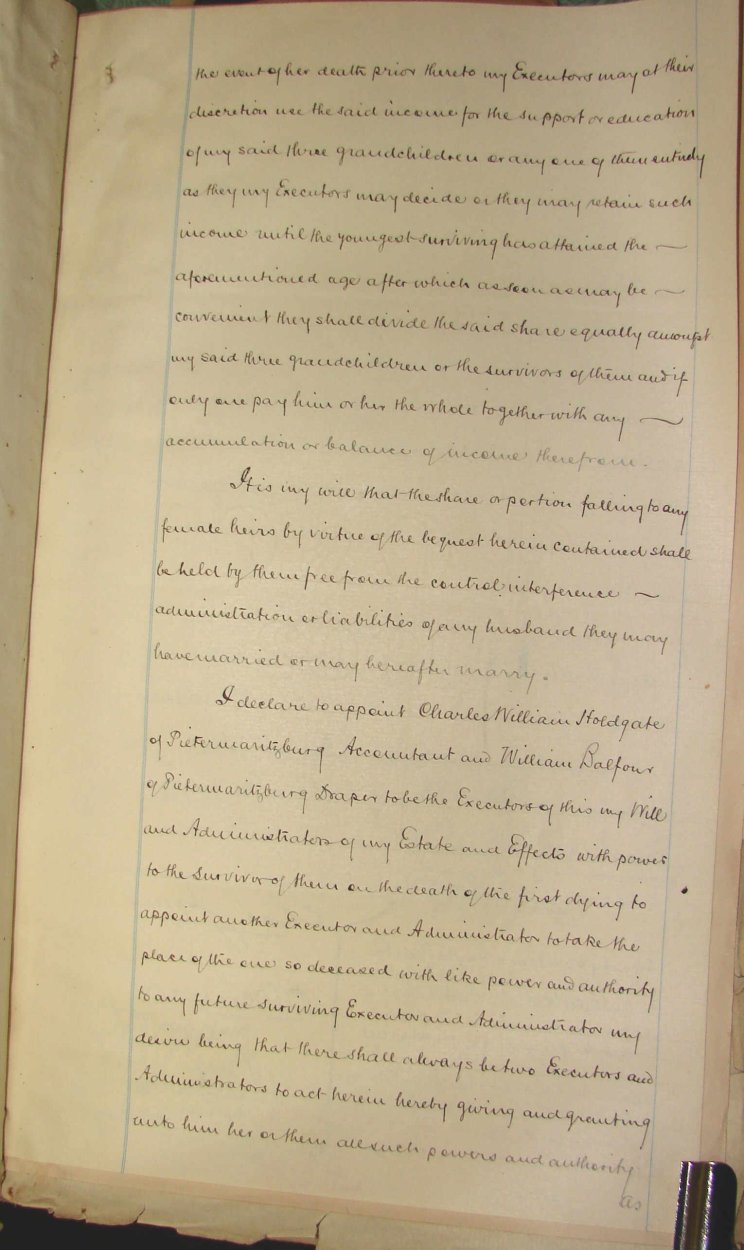 the event of her death prior thereto my Executors may at their
discretion use the said income for the support or education
of my said three grandchildren or any one of them entirely
as they my Executors may decide or they may retain such
income until the youngest surviving has attained the —
aforementioned age after which as soon as may be —
convenient they shall divide the said share equally amongst
my said three grandchildren or the survivors of them and if
only one pay him or her the whole together with any —
accumulation or balance of income therefrom.
It is my will that the share or portion falling to any
female heirs by virtue of the bequest herein contained shall
be held by them free from the control interference —
administration or liabilities of any husband they may
have married or may hereafter marry.
I declare to appoint Charles William Holdgate
of Pietermaritzburg Accountant and William Balfour
of Pietermaritzburg Draper to be the Executors of this my Will
and Administrators of my Estate and Effects with power
to the survivor of them on the death of the first dying to
appoint another Executor and Administrator to take the
place of the one so deceased with like power and authority
to any future surviving Executor and Administrator my
desire being that there shall always be two Executors and
Administrators to act herein hereby giving and granting
unto him her or them all such powers and authority
as